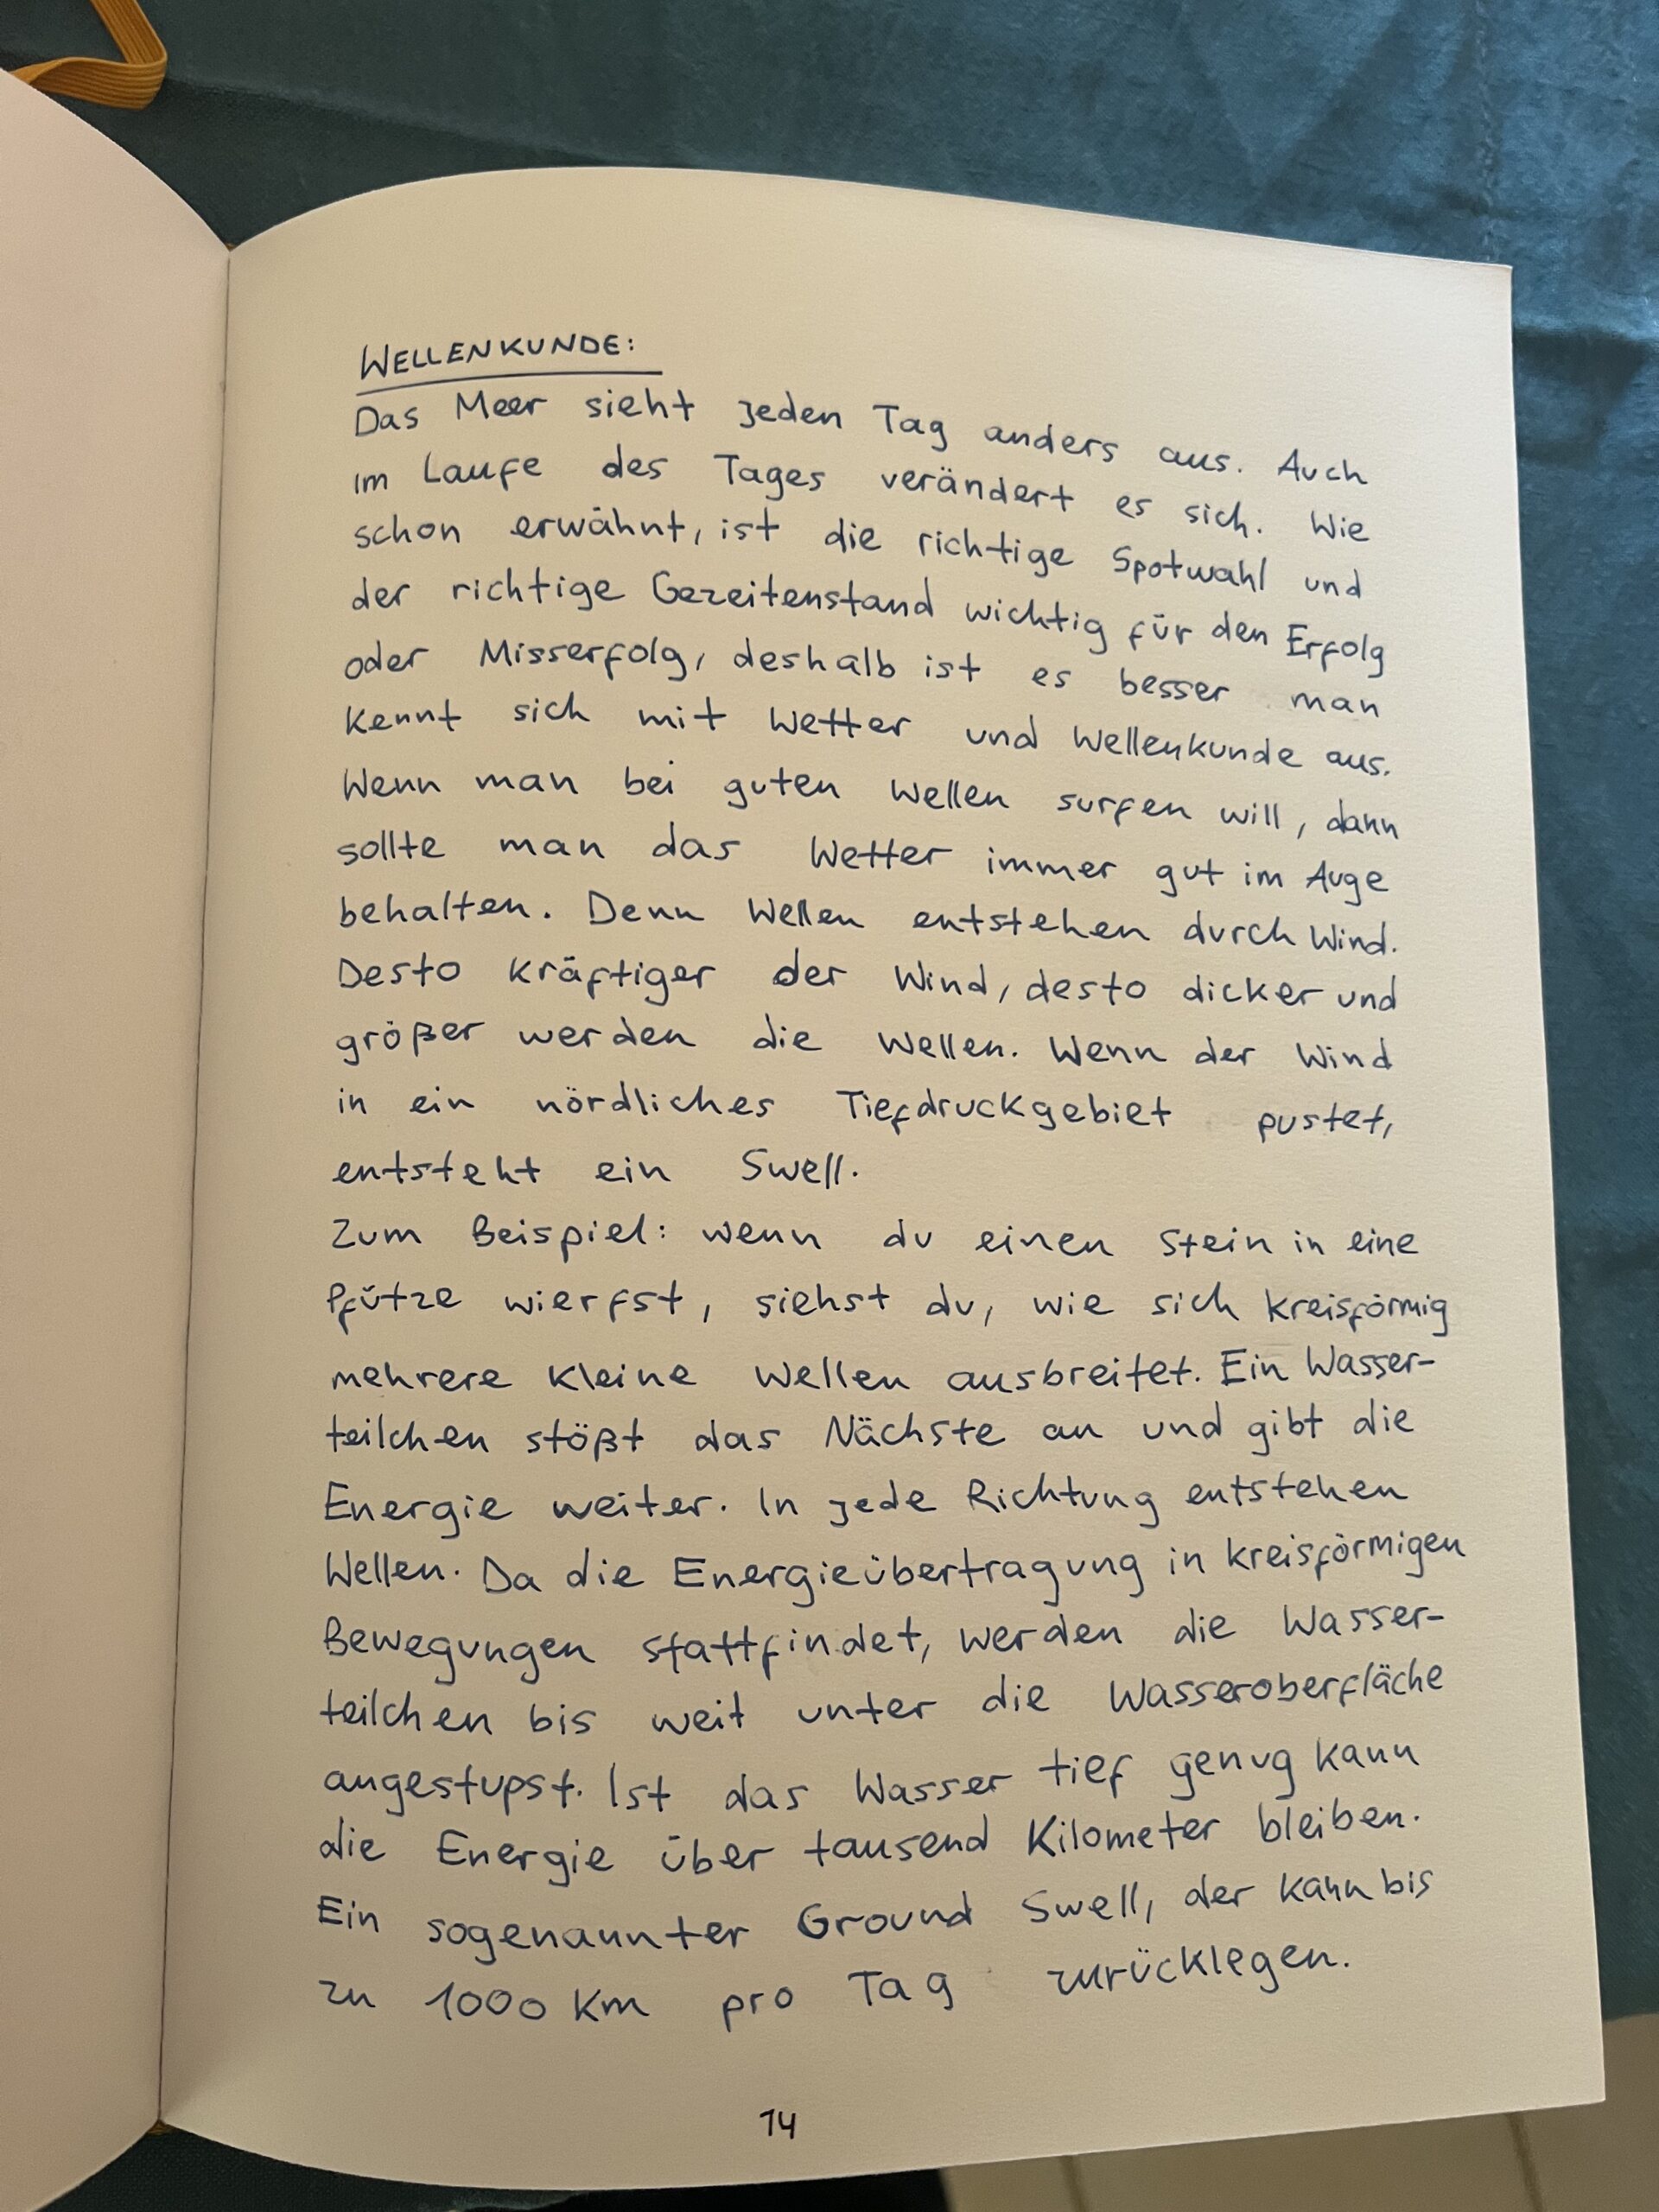 WELLENKUNDE:
Das Meer sieht jeden Tag anders aus. Auch
im Laufe des Tages verändert es sich. Wie
schon erwähnt, ist die richtige Spotwahl und
der richtige Gezeitenstand wichtig für den Erfolg
oder Misserfolg, deshalb ist es besser man
kennt sich mit Wetter und Wellenkunde aus.
Wenn man bei guten Wellen surfen will, dann
sollte man das Wetter immer gut im Auge
behalten. Denn Wellen entstehen durch Wind.
Desto kräftiger der Wind, desto dicker und
größer werden die Wellen. Wenn der Wind
in ein nördliches Tiefdruckgebiet pustet,
entsteht ein Swell.
Zum Beispiel: wenn du einen Stein in eine
Pfütze wierfst, siehst du, wie sich kreisförmig
mehrere kleine Wellen ausbreitet. Ein Wasser-
teilchen stößt das Nächste an und gibt die
Energie weiter. In jede Richtung entstehen
Wellen. Da die Energieübertragung in kreisförmigen
Bewegungen stattfindet, werden die Wasser-
teilchen bis weit unter die Wasseroberfläche
angestupst. Ist das Wasser tief genug kann
die Energie über tausend Kilometer bleiben.
Ein sogenannter Ground Swell, der kann bis
zu 1000 Km pro Tag zurücklegen.
14